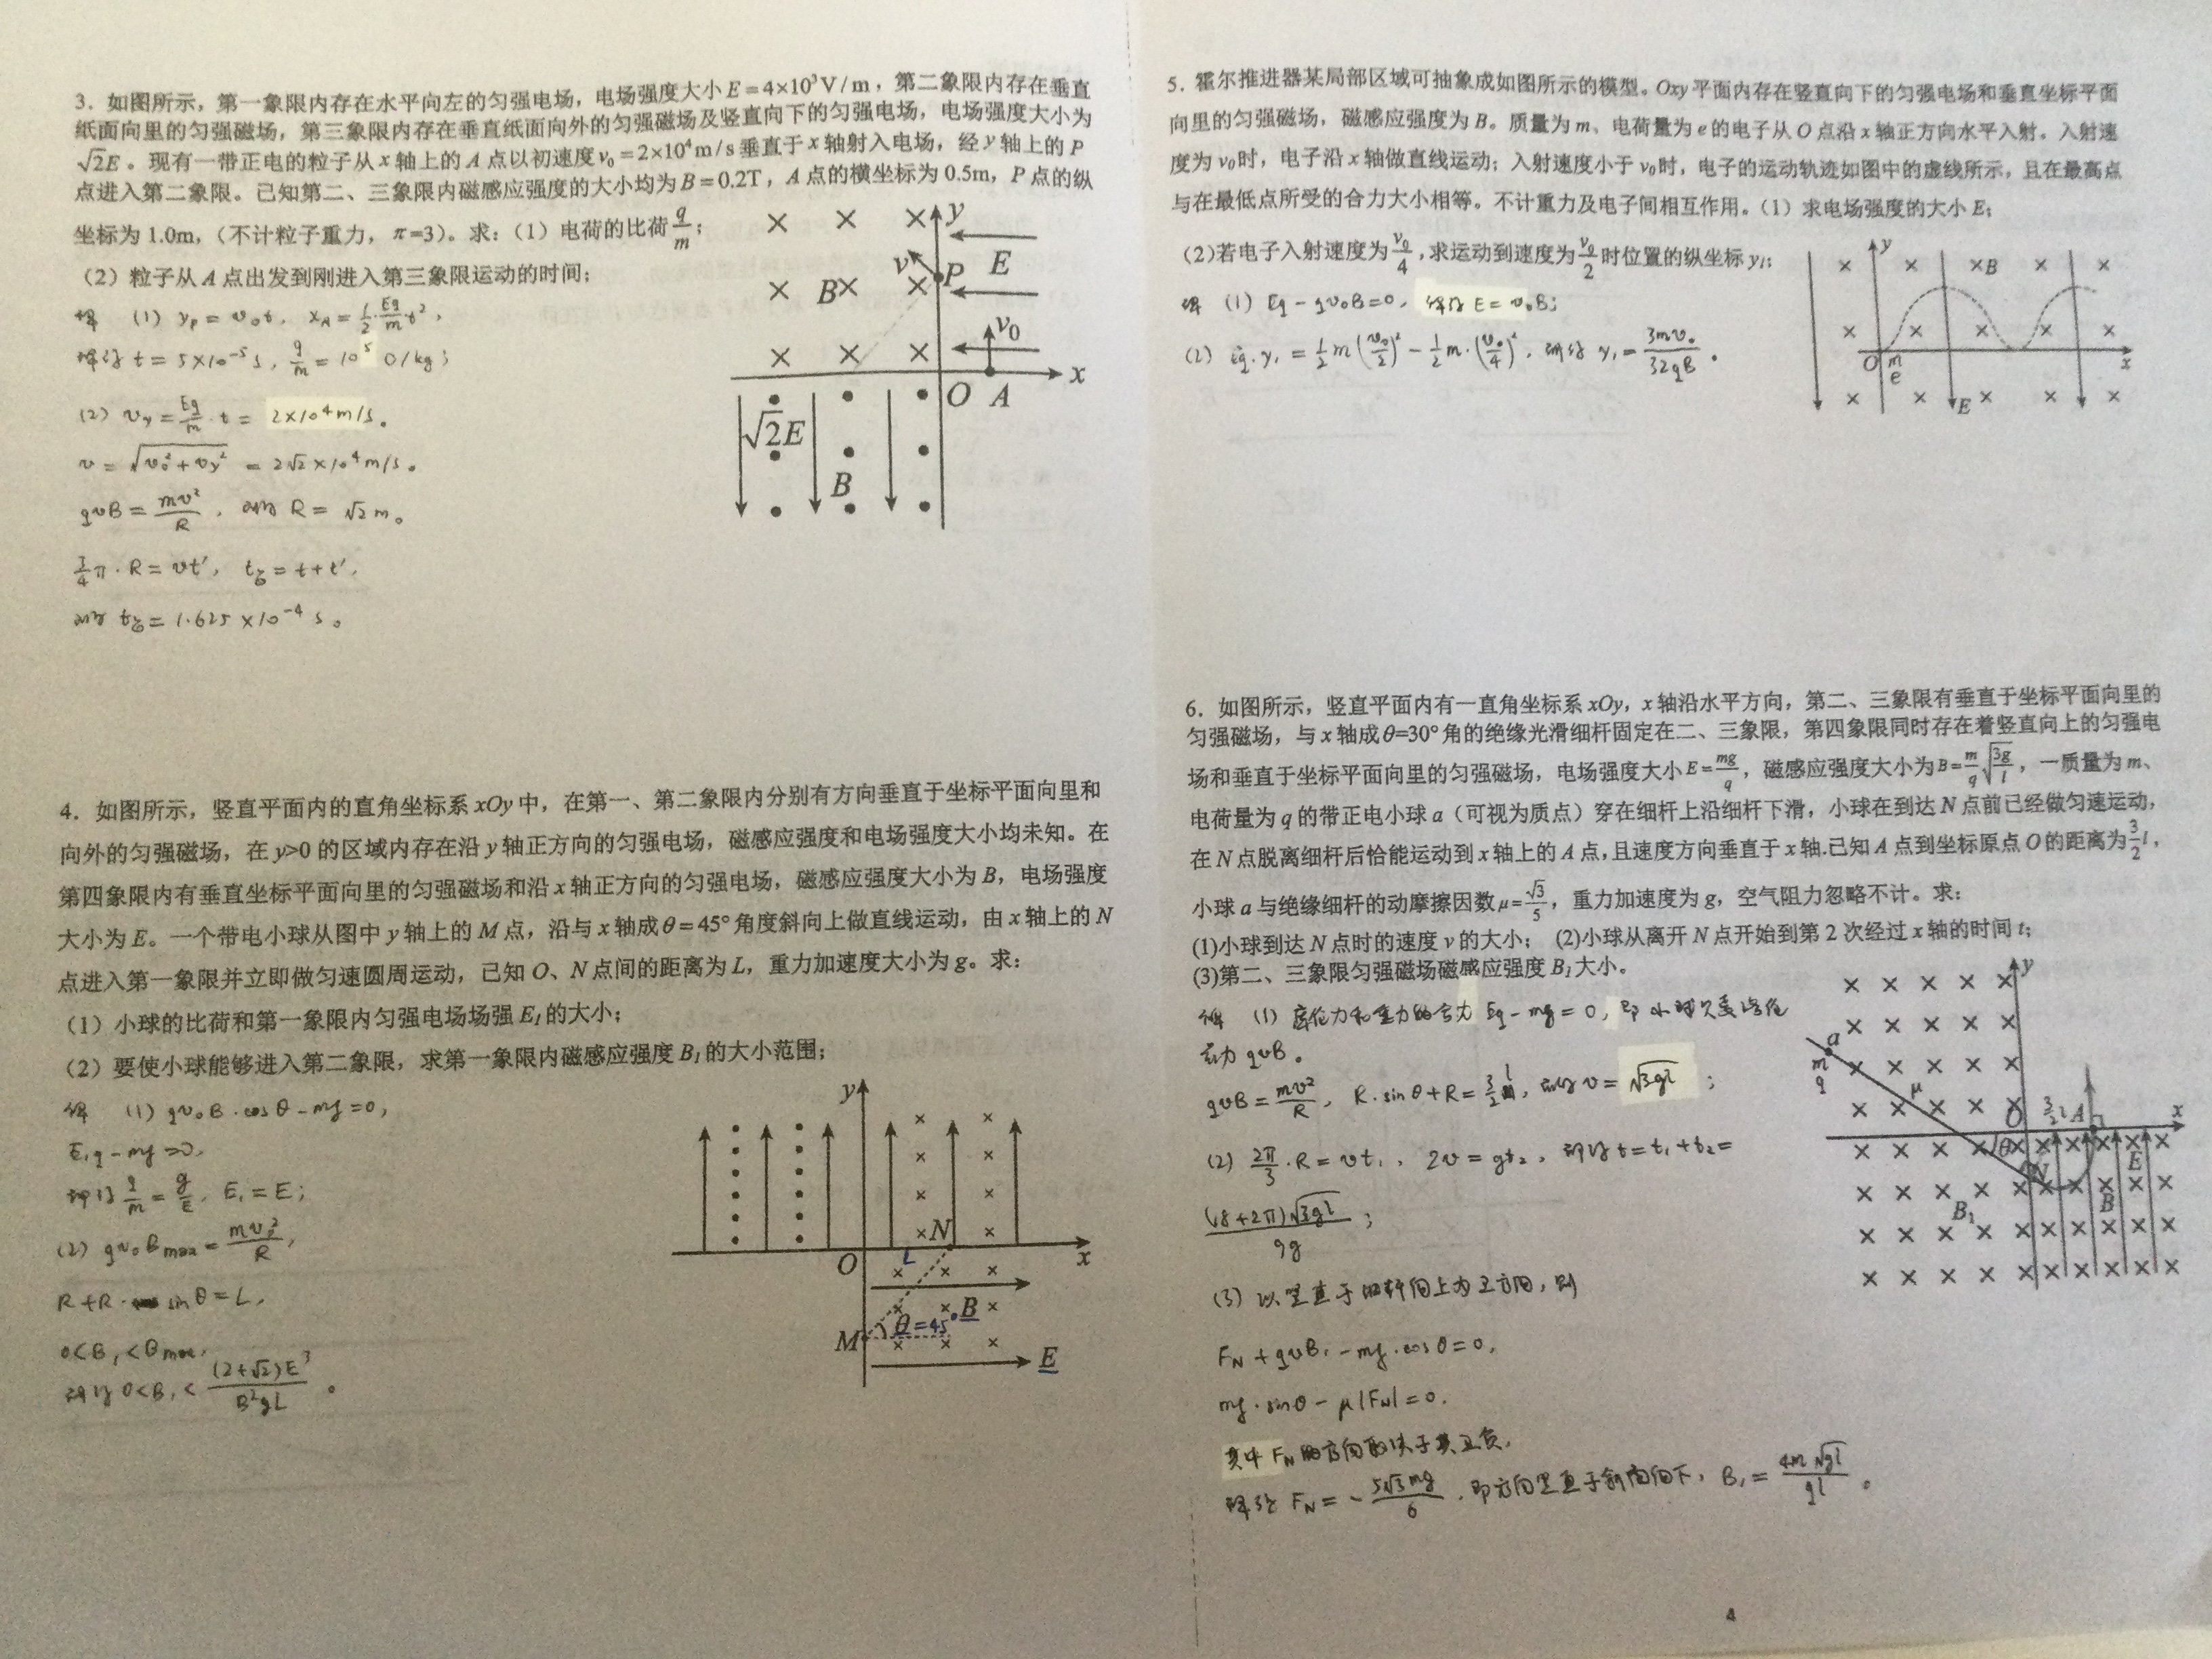 3．如图所示，第一象限内存在水平向左的匀强电场，电场强度大小E=4×10³V/m，第二象限内存在垂直
纸面向里的匀强磁场，第三象限内存在垂直纸面向外的匀强磁场及竖直向下的匀强电场，电场强度大小为
√2E。现有一带正电的粒子从x轴上的A点以初速度v₀=2×10⁴m/s垂直于x轴射入电场，经y轴上的P
点进入第二象限。已知第二、三象限内磁感应强度的大小均为B=0.2T，A点的横坐标为0.5m，P点的纵
坐标为1.0m，（不计粒子重力，π=3）。求：（1）电荷的比荷q/m；
（2）粒子从A点出发到刚进入第三象限运动的时间；
解 (1) yP = v₀t, xA = 1/2·Eq/m·t²,
解得 t = 5×10⁻⁵s, q/m = 10⁵ C/kg；
(2) vy = Eq/m·t = 2×10⁴m/s。
v = √(v₀²+vy²) = 2√2×10⁴m/s。
qvB = mv²/R, 解得 R = √2 m。
3/4π·R = vt', t总 = t+t',
解得 t总 = 1.625×10⁻⁴ s。
y
v
P
E
B
v₀
x
O A
√2E
B
4．如图所示，竖直平面内的直角坐标系xOy中，在第一、第二象限内分别有方向垂直于坐标平面向里和
向外的匀强磁场，在y>0的区域内存在沿y轴正方向的匀强电场，磁感应强度和电场强度大小均未知。在
第四象限内有垂直坐标平面向里的匀强磁场和沿x轴正方向的匀强电场，磁感应强度大小为B，电场强度
大小为E。一个带电小球从图中y轴上的M点，沿与x轴成θ=45°角度斜向上做直线运动，由x轴上的N
点进入第一象限并立即做匀速圆周运动，已知O、N点间的距离为L，重力加速度大小为g。求：
（1）小球的比荷和第一象限内匀强电场场强E₁的大小；
（2）要使小球能够进入第二象限，求第一象限内磁感应强度B₁的大小范围；
解 (1) qv₀B·cosθ-mg=0,
E₁q-mg=0,
解得 q/m = g/E, E₁=E；
(2) qv₀Bmax = mv₀²/R,
R+R·sinθ=L,
0<B₁<Bmax,
解得 0<B₁< (2+√2)E³/B²gL 。
y
N
O
L
x
θ=45°
B
M
E
5．霍尔推进器某局部区域可抽象成如图所示的模型。Oxy平面内存在竖直向下的匀强电场和垂直坐标平面
向里的匀强磁场，磁感应强度为B。质量为m、电荷量为e的电子从O点沿x轴正方向水平入射。入射速
度为v₀时，电子沿x轴做直线运动；入射速度小于v₀时，电子的运动轨迹如图中的虚线所示，且在最高点
与在最低点所受的合力大小相等。不计重力及电子间相互作用。（1）求电场强度的大小E；
（2）若电子入射速度为v₀/4，求运动到速度为v₀/2时位置的纵坐标y₁；
解 (1) Eq-qv₀B=0, 解得 E=v₀B；
(2) Eq·y₁ = 1/2m(v₀/2)² - 1/2m·(v₀/4)², 解得 y₁ = 3mv₀/32qB 。
y
B
O
m
e
x
E
6．如图所示，竖直平面内有一直角坐标系xOy，x轴沿水平方向，第二、三象限有垂直于坐标平面向里的
匀强磁场，与x轴成θ=30°角的绝缘光滑细杆固定在二、三象限，第四象限同时存在着竖直向上的匀强电
场和垂直于坐标平面向里的匀强磁场，电场强度大小E=mg/q，磁感应强度大小为B=m/q√(3g/l)，一质量为m、
电荷量为q的带正电小球a（可视为质点）穿在细杆上沿细杆下滑，小球在到达N点前已经做匀速运动，
在N点脱离细杆后恰能运动到x轴上的A点，且速度方向垂直于x轴.已知A点到坐标原点O的距离为3/2l，
小球a与绝缘细杆的动摩擦因数μ=√3/5，重力加速度为g，空气阻力忽略不计。求：
(1)小球到达N点时的速度v的大小； (2)小球从离开N点开始到第2次经过x轴的时间t；
(3)第二、三象限匀强磁场磁感应强度B₁大小。
解 (1) 库伦力和重力的合力 Eq-mg=0, 即小球只受洛伦
兹力 qvB。
qvB = mv²/R, R·sinθ+R = 3/2l, 解得 v = √3gl ；
(2) 2π/3·R = vt₁, 2v = gt₂, 解得 t = t₁+t₂ =
(18+2π)√3gl/9g ；
(3) 以垂直于细杆向上为正方向, 则
FN+qvB₁-mg·cosθ=0,
mg·sinθ-μ|FN|=0.
其中 FN 的方向取决于其正负,
解得 FN = -5√3mg/6, 即方向垂直于斜面向下, B₁ = 4m√gl/ql 。
y
a
m
q
μ
O
3/2l A
x
θ
N
E
B
B₁
4